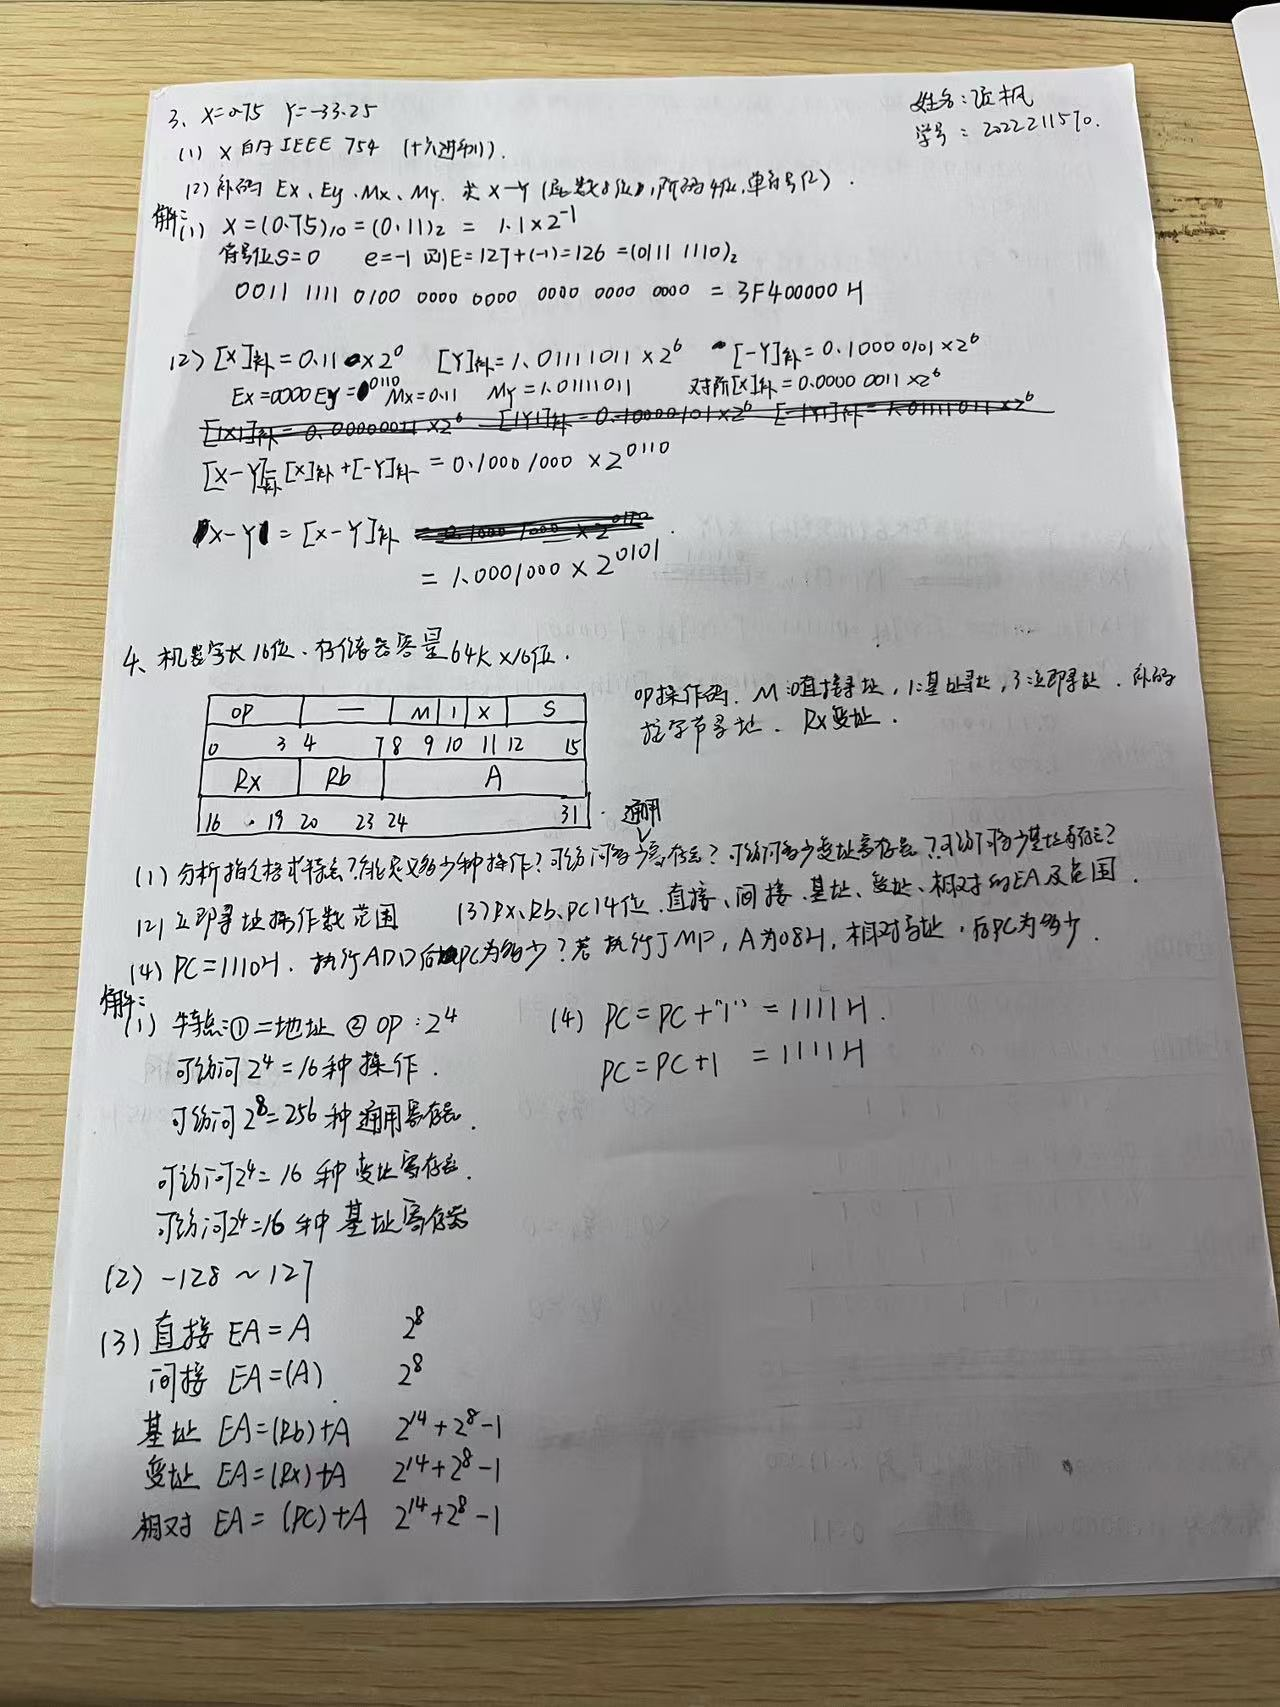 姓名:
学号: 2022211570.
3、X=0.75 Y=-33.25
(1) X的 IEEE 754 (十六进制).
(2) 补码 Ex、Ey、Mx、My. 求 X-Y (尾数8位, 阶码4位, 单符号位).
解:(1) X=(0.75)₁₀=(0.11)₂ = 1.1×2⁻¹
符号位S=0 e=-1 则E=127+(-1)=126=(0111 1110)₂
0011 1111 0100 0000 0000 0000 0000 0000 = 3F400000 H
(2) [X]补=0.11×2⁰ [Y]补=1.01111011×2⁶ [-Y]补=0.1000 0101×2⁶
Ex=0000 Ey=0110 Mx=0.11 My=1.01111011 对阶[X]补=0.0000 0011×2⁶
[|X|]补=0.00000011×2⁶ [|Y|]补=0.10000101×2⁶ [-|Y|]补=1.01111011×2⁶
[X-Y]补=[X]补+[-Y]补=0.1000 1000×2⁰¹¹⁰
X-Y=[X-Y]补 =0.1000 1000×2⁰¹¹⁰.
=1.0001000×2⁰¹⁰¹
4、机器字长16位、存储器容量64K×16位.
OP — M I X S
0 3 4 7 8 9 10 11 12 15
Rx Rb A
16 19 20 23 24 31
OP操作码. M:0直接寻址, 1:基址寻址, 3:立即寻址. 补码
按字节寻址. Rx变址.
通用
(1) 分析指令格式特点?能定义多少种操作?可访问多少寄存器?可访问多少变址寄存器?可访问多少基址寄存器?
(2) 立即寻址操作数范围 (3)Rx、Rb、PC14位.直接、间接、基址、变址、相对的EA及范围.
(4) PC=1110H. 执行ADD后PC为多少?若执行JMP, A为08H, 相对寻址,后PC为多少.
解:
(1) 特点:①二地址 ②OP:2⁴
可访问2⁴=16种操作.
可访问2⁸=256种通用寄存器.
可访问2⁴=16种变址寄存器.
可访问2⁴=16种基址寄存器
(4) PC=PC+"1"=1111H.
PC=PC+1 =1111H
(2) -128~127
(3) 直接 EA=A 2⁸
间接 EA=(A) 2⁸
基址 EA=(Rb)+A 2¹⁴+2⁸-1
变址 EA=(Rx)+A 2¹⁴+2⁸-1
相对 EA=(PC)+A 2¹⁴+2⁸-1